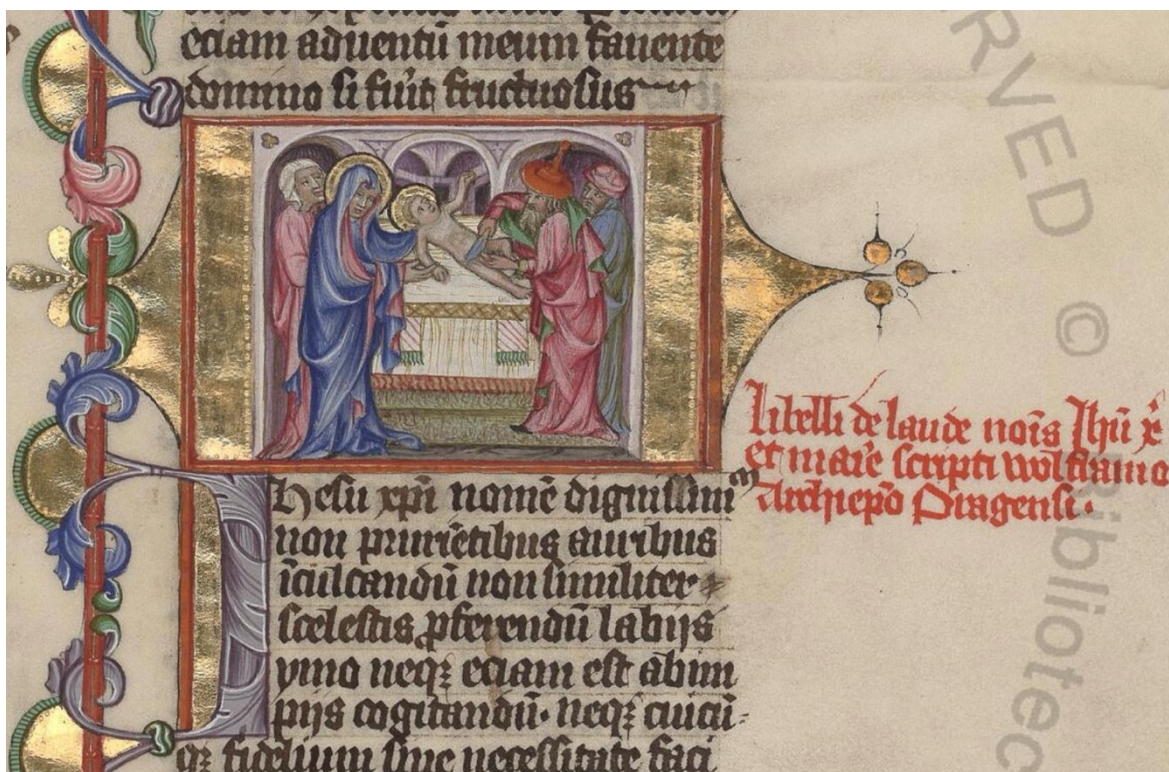 eciam aduentū meum fauente
domino si fuit fructuosus
Ihesu xpī nomē dignissim
non pruriētibus auribus
īculcandū non similiter
scelestis pferendū labijs
ymo neqꝫ eciam est abim
pijs cogitandū· neqꝫ cuicū
qꝫ fidelium sine necessitate faci
libelli de laude noīs Ihū x̄
et marie scripti wolframo
Archiepō Pragensi·
RVED ©
Bibliotec